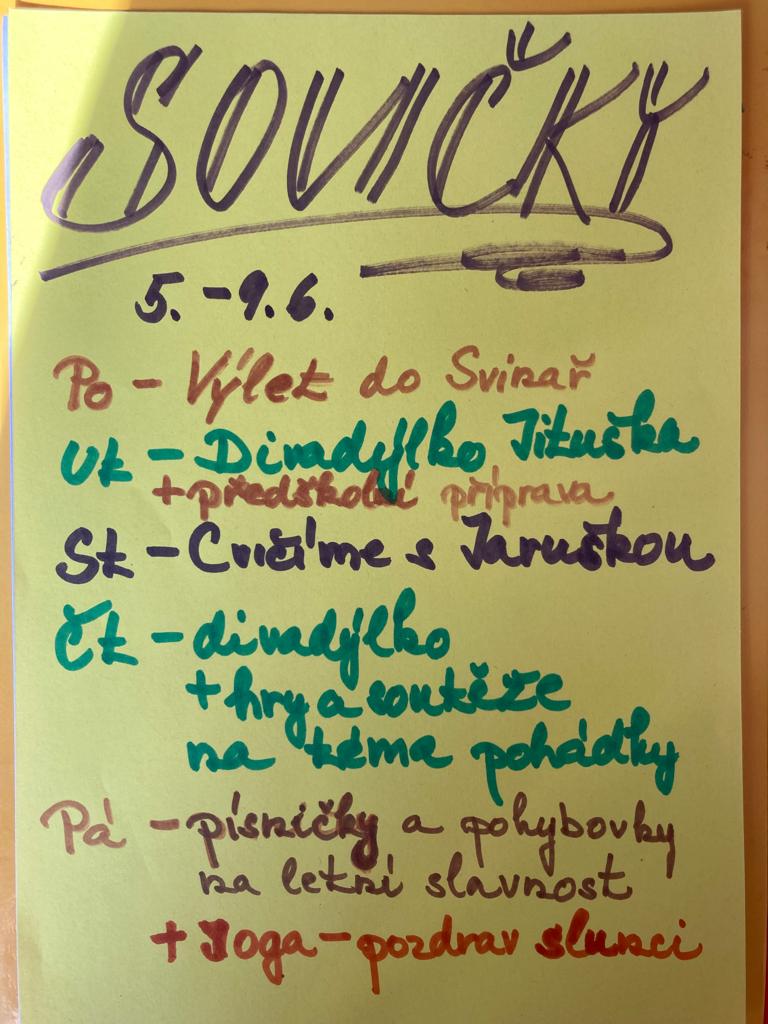 SOVIČKY
5. - 9. 6.
Po - Výlet do Svinař
Út - Divadýlko Jituška
+ předškolní příprava
St - Cvičíme s Jaruškou
Čt - divadýlko
+ hry a soutěže
na téma pohádky
Pá - písničky a pohybovky
na letní slavnost
+ Joga - pozdrav slunci